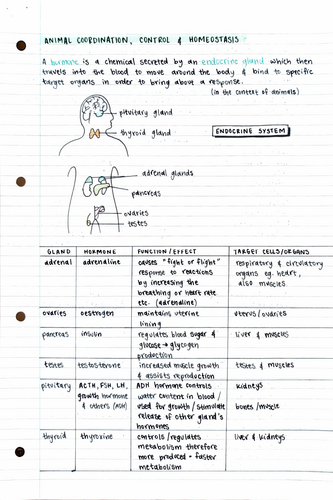 ANIMAL COORDINATION, CONTROL & HOMEOSTASIS
A hormone is a chemical secreted by an endocrine gland which then
travels into the blood to move around the body & bind to specific
target organs in order to bring about a response.
(in the context of animals)
pituitary gland
thyroid gland
ENDOCRINE SYSTEM
adrenal glands
pancreas
ovaries
testes
GLAND HORMONE FUNCTION/EFFECT TARGET CELLS/ORGANS
adrenal adrenaline causes "fight or flight" respiratory & circulatory
response to reactions organs eg. heart,
by increasing the also muscles
breathing or heart rate
etc. (adrenaline)
ovaries oestrogen maintains uterine uterus/ovaries
lining
pancreas insulin regulates blood sugar & liver & muscles
glucose → glycogen
production
testes testosterone increased muscle growth testes & muscles
& assists reproduction
pituitary ACTH, FSH, LH, ADH hormone controls kidneys
growth hormone water content in blood /
& others (ADH) used for growth/stimulate bones/muscle
release of other gland's
hormones
thyroid thyroxine controls/regulates liver & kidneys
metabolism therefore
more produced = faster
metabolism